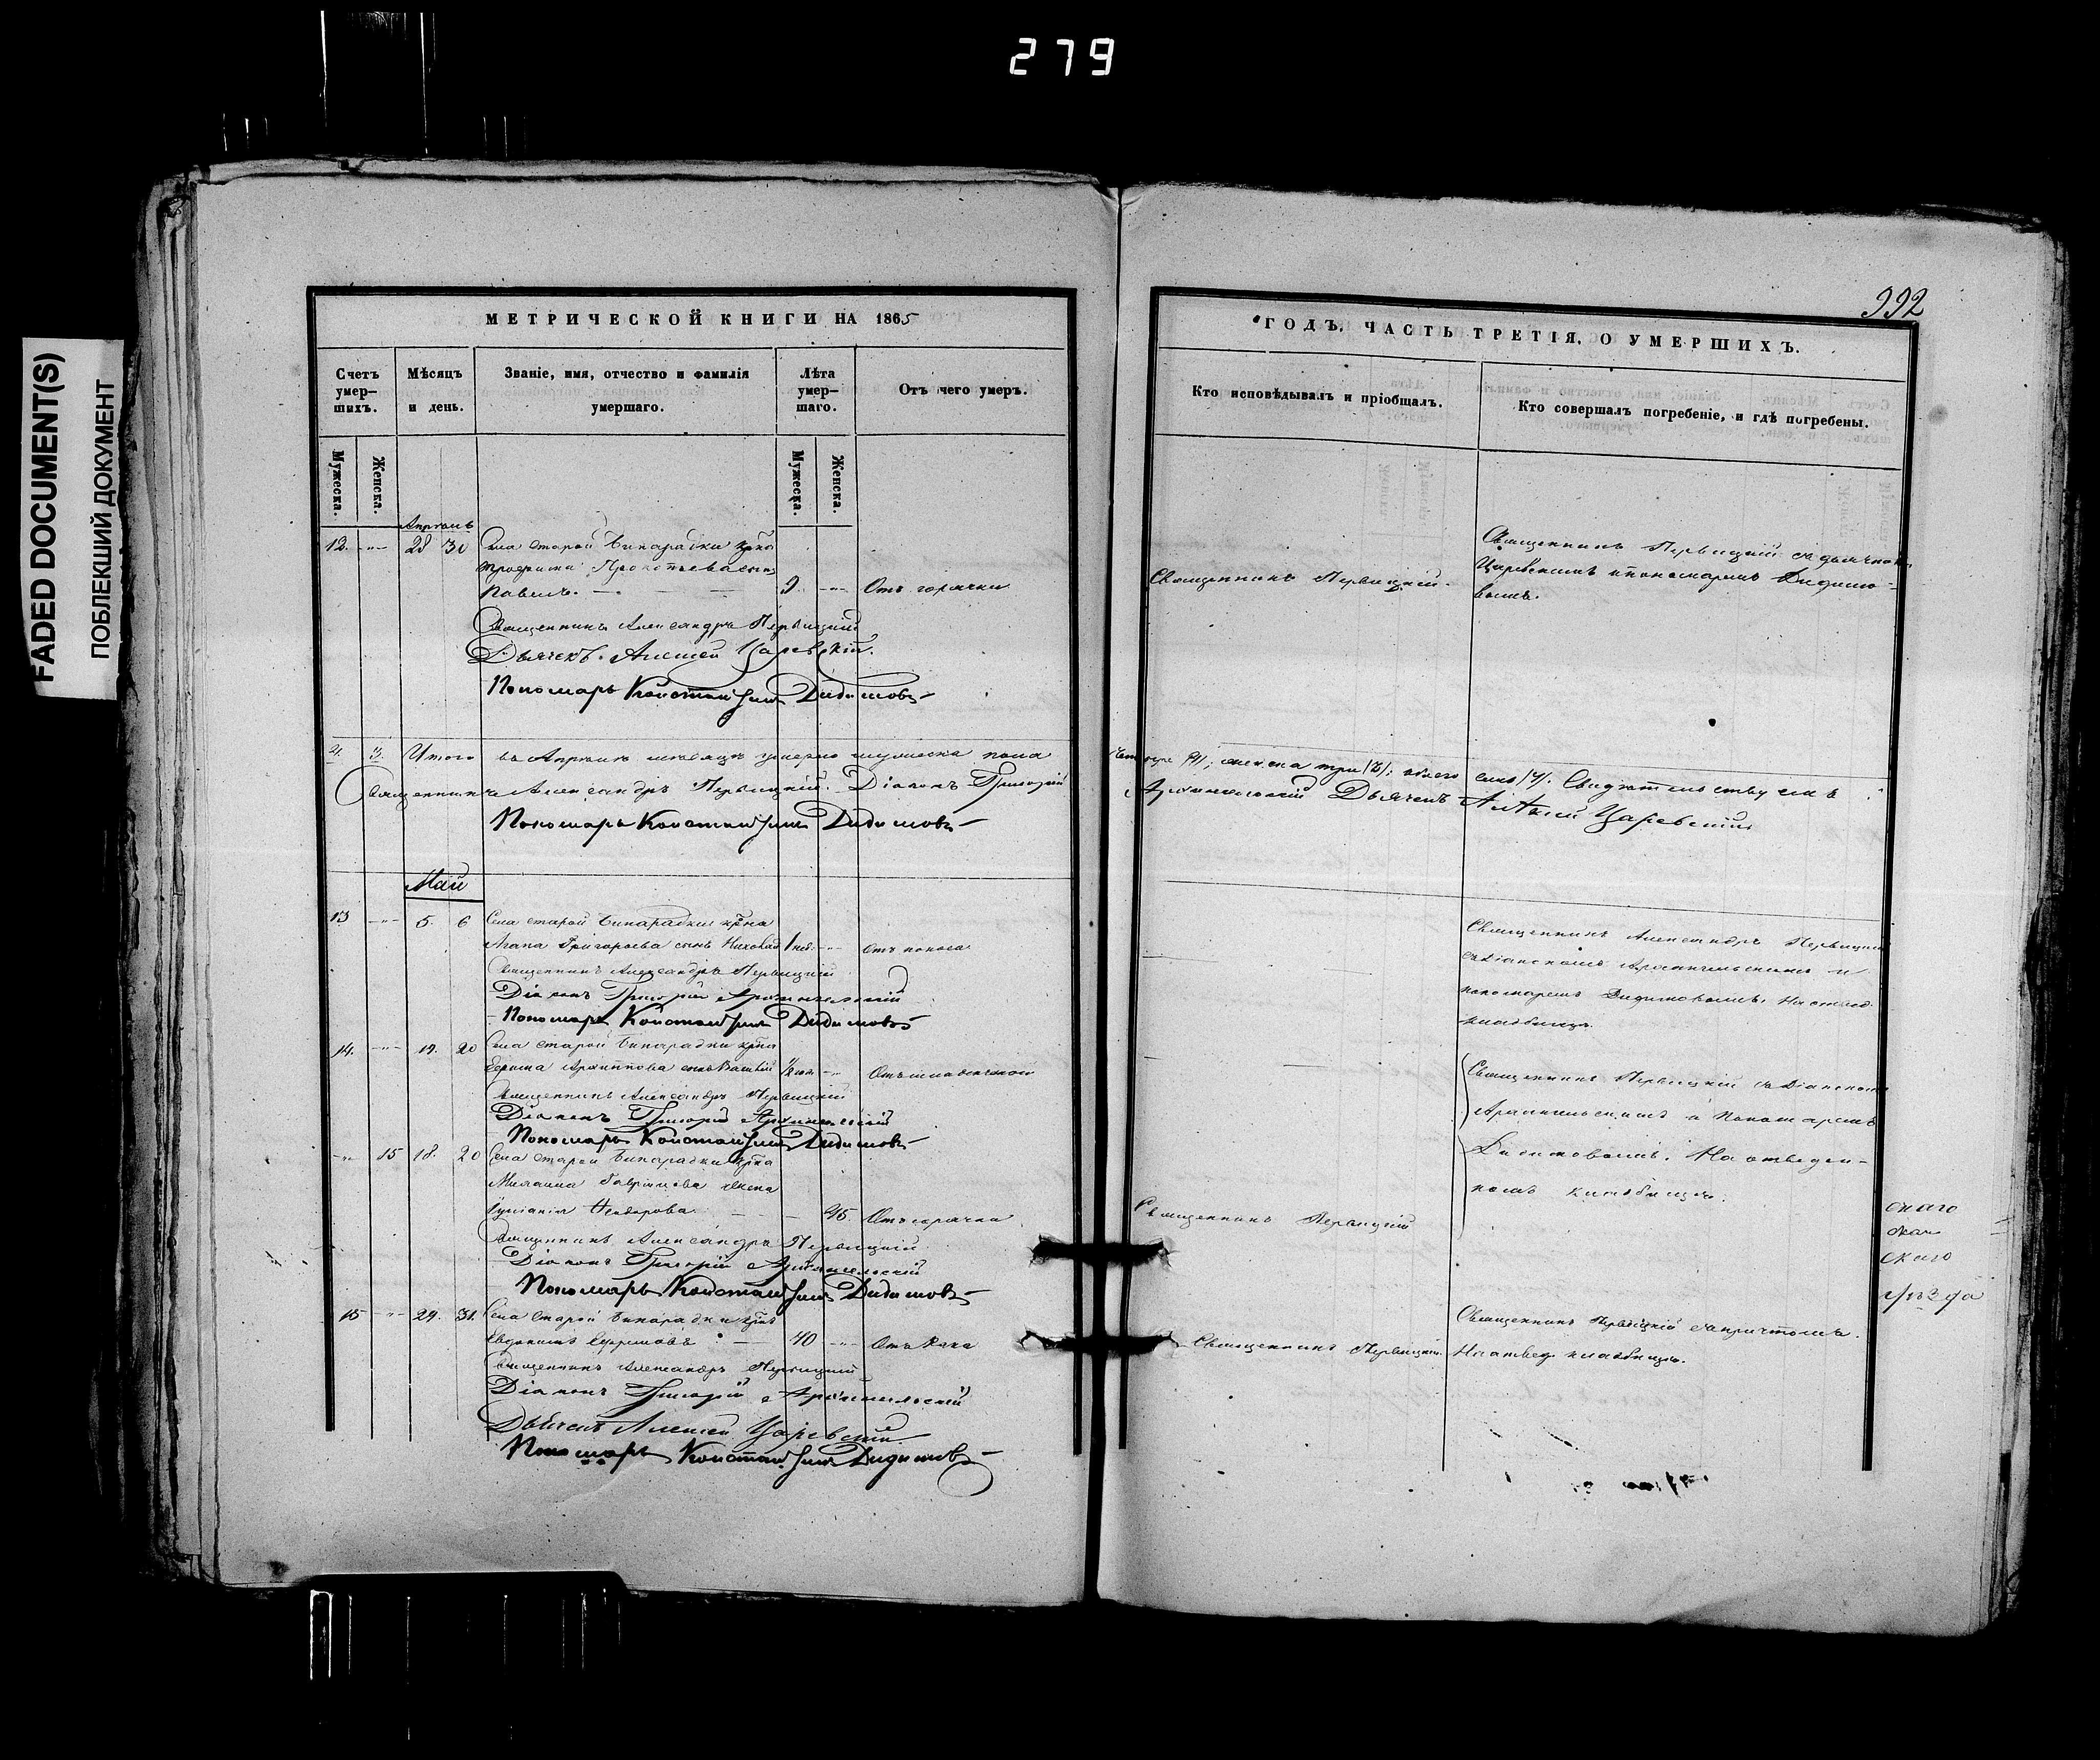 279
FADED DOCUMENT(S)
ПОБЛЕКШИЙ ДОКУМЕНТ
992
МЕТРИЧЕСКОЙ КНИГИ НА 1865
Счетъ умер-шихъ.
Мѣсяцъ и день.
Званіе, имя, отчество и фамилія умершаго.
Лѣта умер-шаго.
Отъ чего умеръ.
Мужеска.
Женска.
Мужеска.
Женска.
Апрѣль
12. 28 30 Села старой Бинарадки
Прокопьева сынъ
Павелъ. 9. Отъ горячки
Священникъ Александръ Первицкій
Дьячекъ Алексей Царевскій.
Пономарь Константинъ Дидимовъ
4. 3. Итого въ Апрѣлѣ мѣсяцѣ умерло мужеска пола
Священникъ Александръ Первицкій. Діаконъ Григорій
Пономарь Константинъ Дидимовъ
Май
13 5. 6 Села старой Бинарадки
Григорьева сынъ отъ поноса
Священникъ Александръ Первицкій
Діаконъ Григорій Архангельскій
Пономарь Константинъ Дидимовъ
14. 19. 20 Села старой Бинарадки
Архиппова
Священникъ Александръ Первицкій
Діаконъ Григорій Архангельскій
Пономарь Константинъ Дидимовъ
15 18. 20 Села старой Бинарадки
жена
Феодорова 45. Отъ горячки
Священникъ Александръ Первицкій
Діаконъ Григорій Архангельскій
Пономарь Константинъ Дидимовъ
15 29. 31. Села Старой Бинарадки
Евдокимъ Ефремовъ 40
Священникъ Александръ Первицкій
Діаконъ Григорій Архангельскій
Дьячекъ Алексей Царевскій
Пономарь Константинъ Дидимовъ
ГОДЪ, ЧАСТЬ ТРЕТІЯ, О УМЕРШИХЪ.
Кто исповѣдывалъ и пріобщалъ.
Кто совершалъ погребеніе, и гдѣ погребены.
Священникъ Первицкій.
Священникъ Первицкій съ дьячкомъ
Царевскимъ и пономаремъ Дидимо-
вымъ.
четыре /4/; женска три /3/; обоего семь /7/. Свидѣтельствуемъ
Архангельскій Дьячекъ Алексей Царевскій
Священникъ Александръ Первицкій
съ Діакономъ Архангельскимъ и
пономаремъ Дидимовымъ. На отвед.
кладбищѣ.
Священникъ Первицкій съ Діакономъ
Архангельскимъ и Пономаремъ
Дидимовымъ. На отведен-
номъ кладбищѣ.
Священникъ Первицкій
Священникъ Первицкій.
Священникъ Первицкій съ причтомъ.
На отвед. кладбищѣ.
скаго
уѣзда